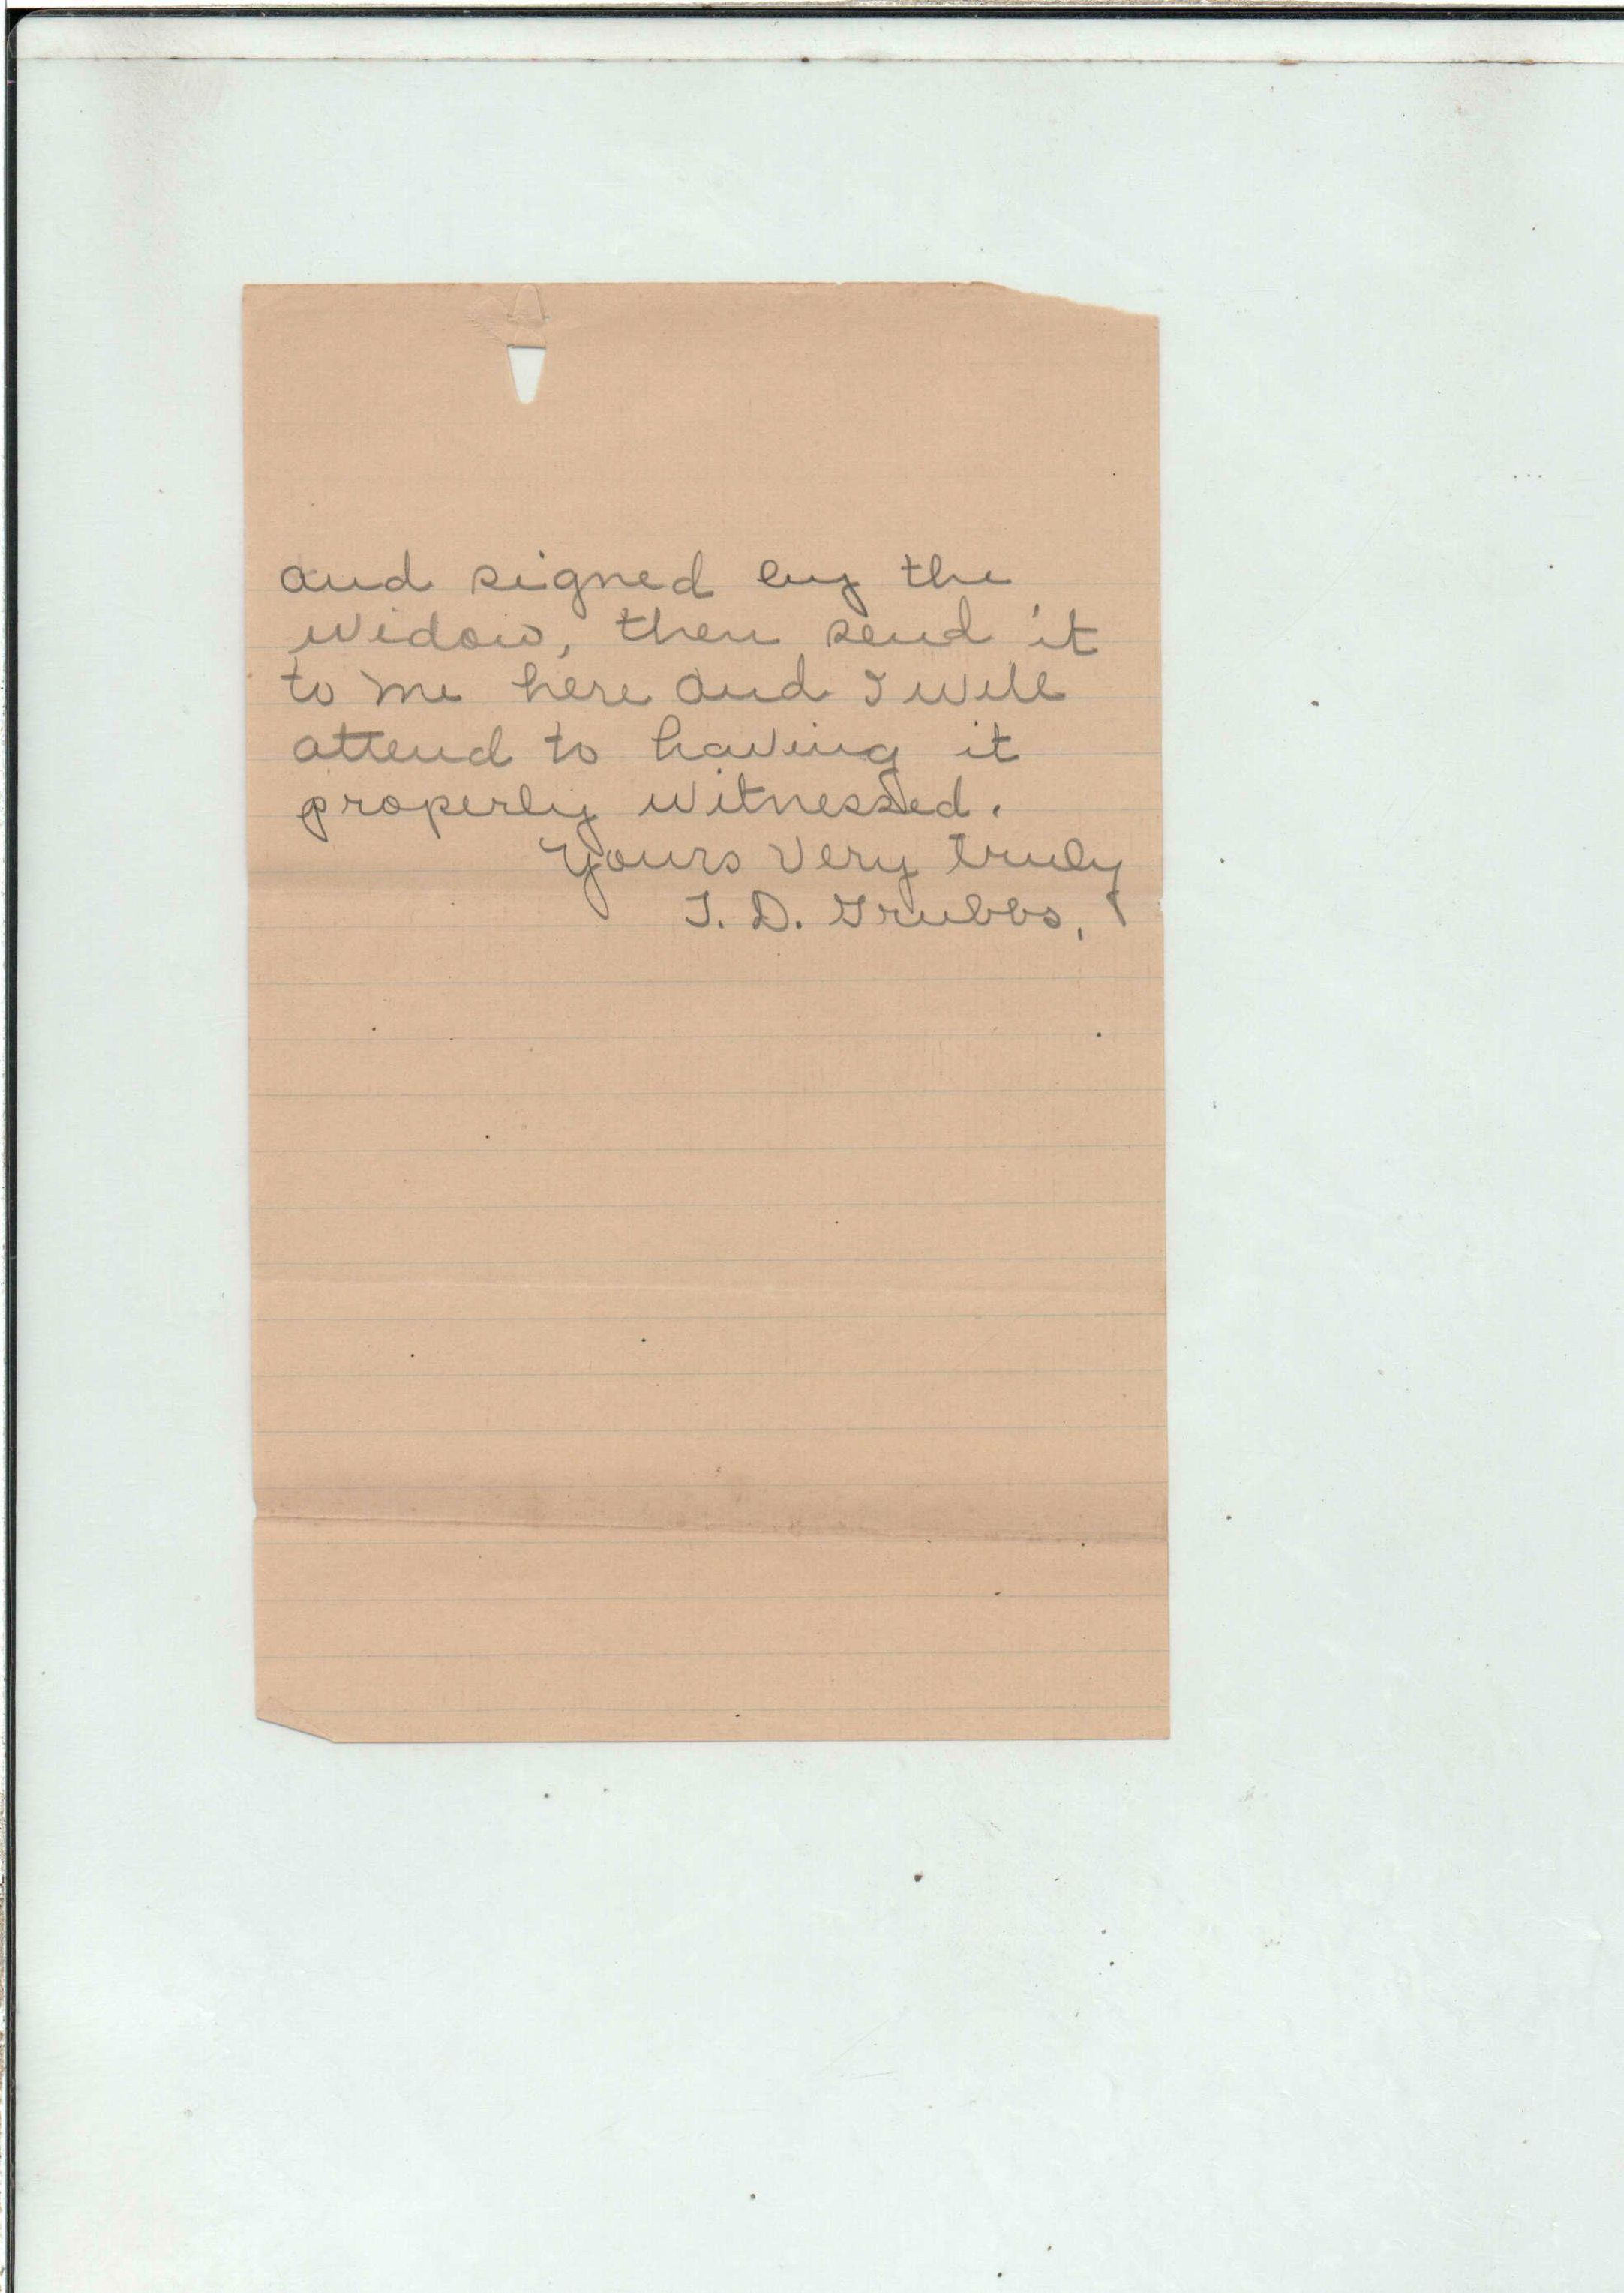 and signed by the
widow, then send it
to me here and I will
attend to having it
properly witnessed.
Yours Very truly
T. D. Grubbs,